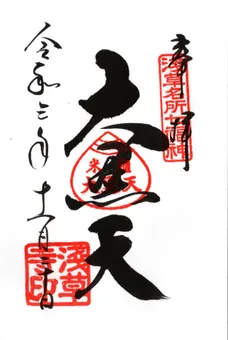 奉拝
浅草名所七福神
大黒天
令和三年十二月三十日
浅草寺印